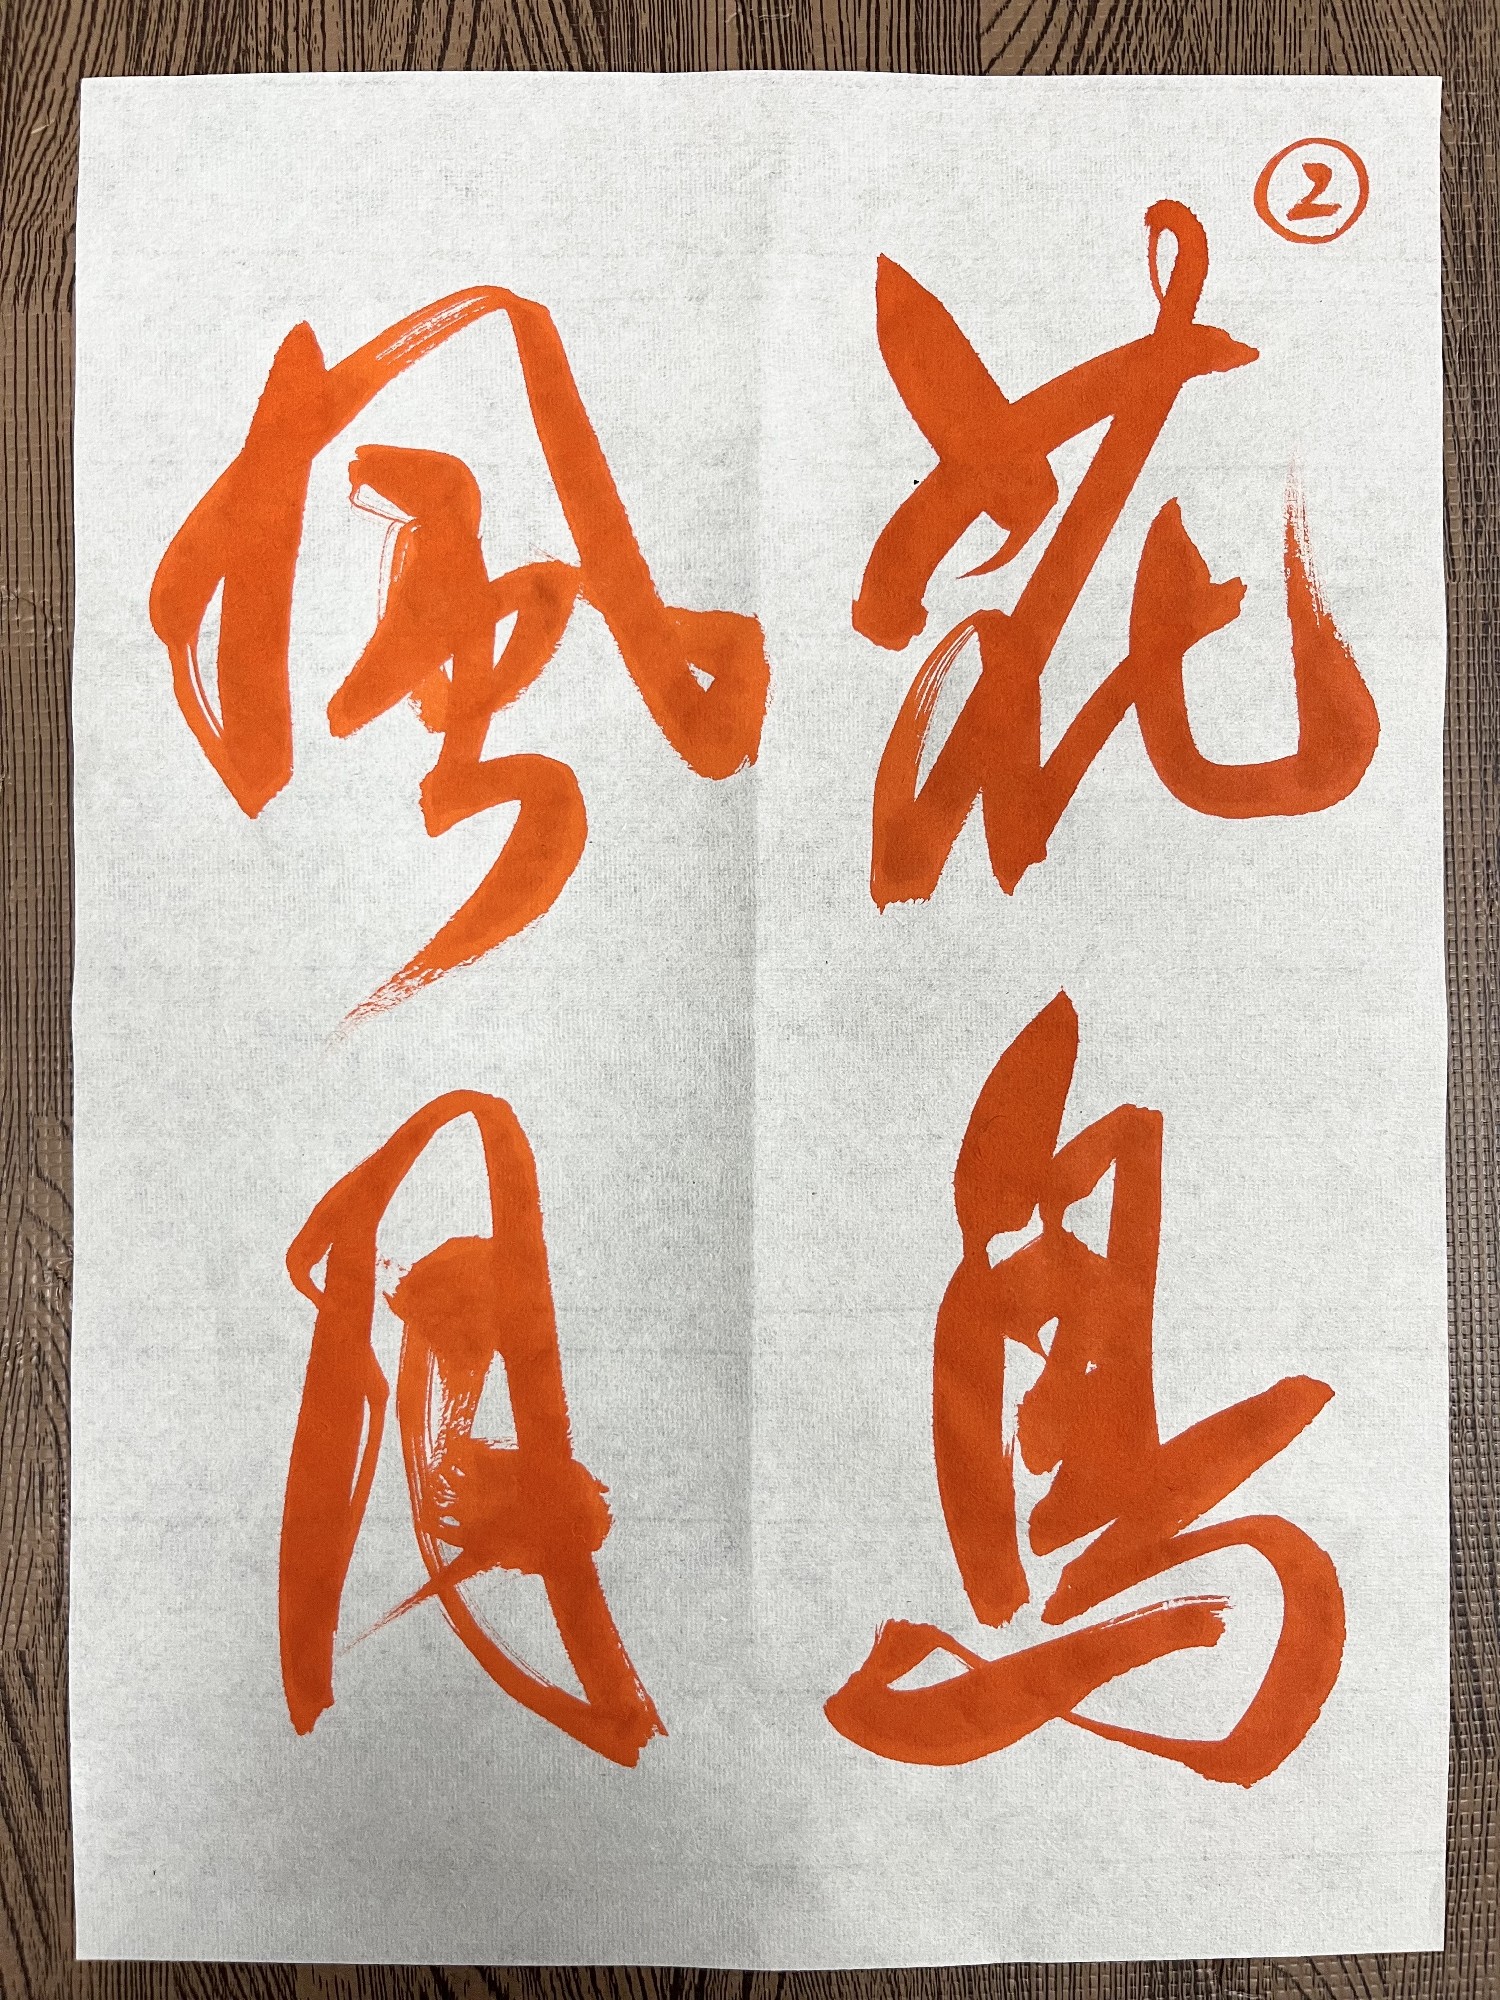 ②
花鳥
風月